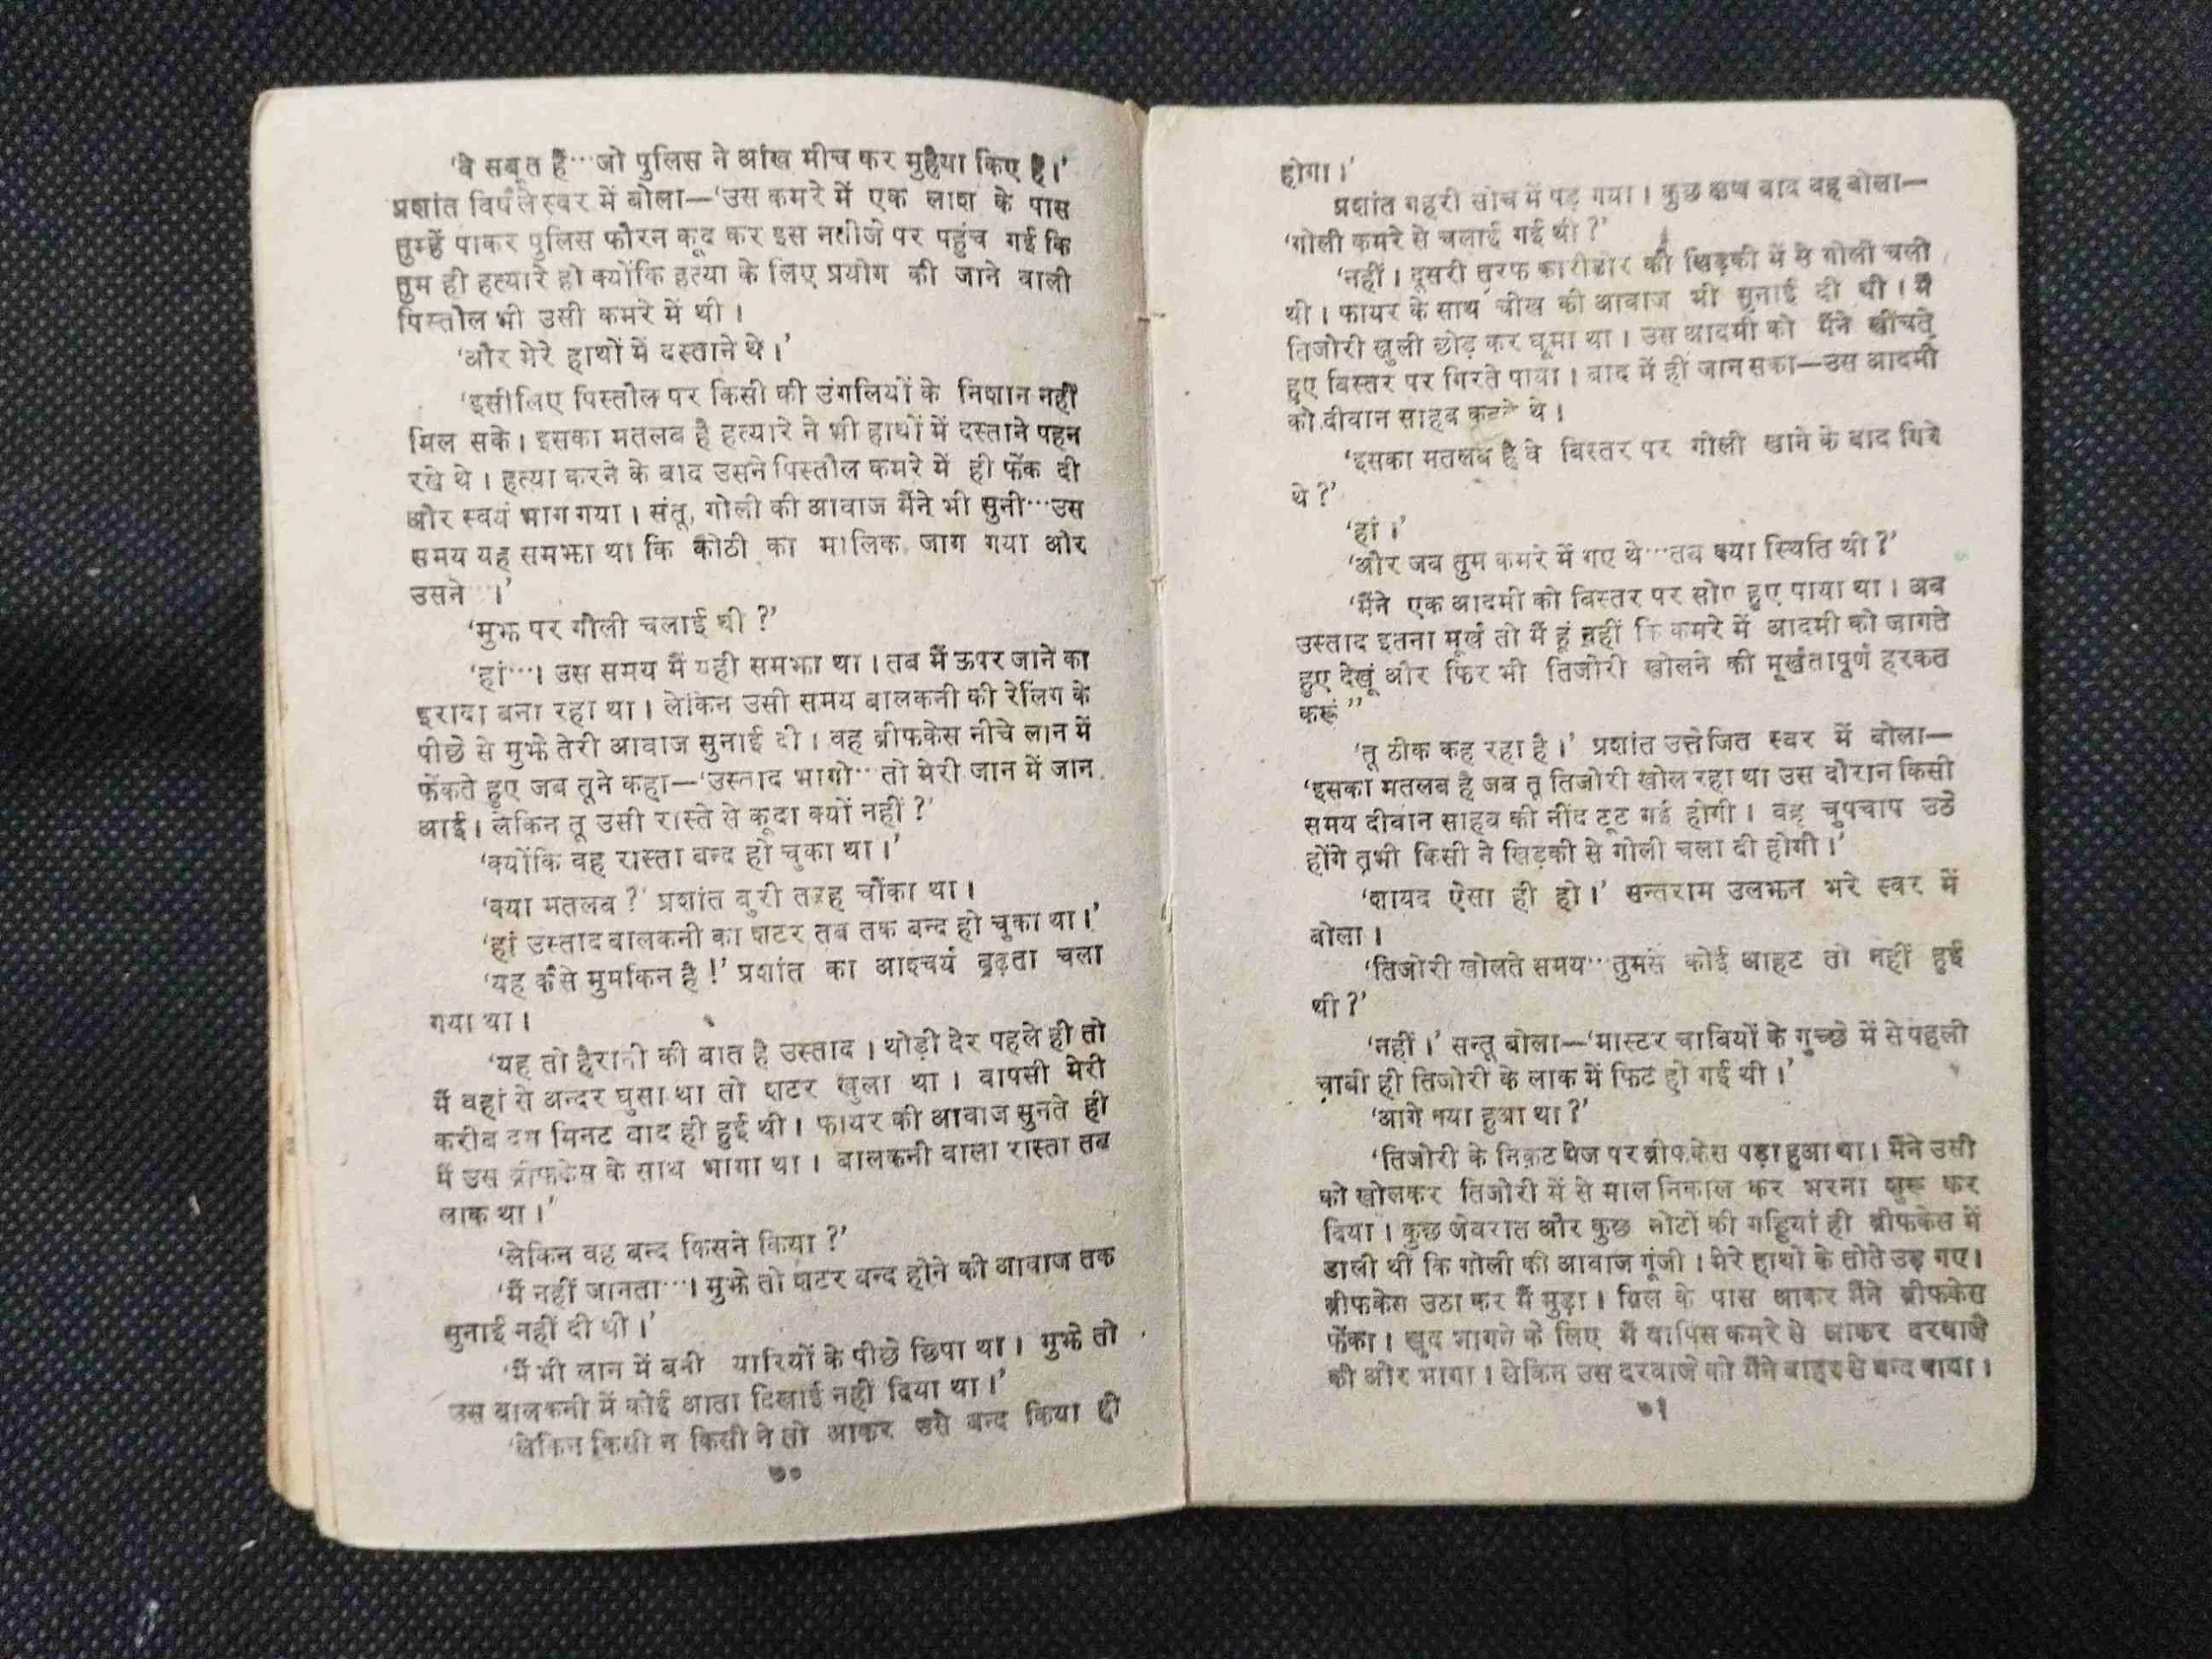 'वे सबूत हैं…जो पुलिस ने आंख मीच कर मुहैया किए हैं।'
प्रशांत विषैले स्वर में बोला—'उस कमरे में एक लाश के पास
तुम्हें पाकर पुलिस फौरन कूद कर इस नतीजे पर पहुंच गई कि
तुम ही हत्यारे हो क्योंकि हत्या के लिए प्रयोग की जाने वाली
पिस्तौल भी उसी कमरे में थी।
'और मेरे हाथों में दस्ताने थे।'
'इसीलिए पिस्तौल पर किसी की उंगलियों के निशान नहीं
मिल सके। इसका मतलब है हत्यारे ने भी हाथों में दस्ताने पहन
रखे थे। हत्या करने के बाद उसने पिस्तौल कमरे में ही फेंक दी
और स्वयं भाग गया। संतू, गोली की आवाज मैंने भी सुनी…उस
समय यह समझा था कि कोठी का मालिक जाग गया और
उसने…।'
'मुझ पर गोली चलाई थी ?'
'हां…। उस समय मैं यही समझा था। तब मैं ऊपर जाने का
इरादा बना रहा था। लेकिन उसी समय बालकनी की रेलिंग के
पीछे से मुझे तेरी आवाज सुनाई दी। वह ब्रीफकेस नीचे लान में
फेंकते हुए जब तूने कहा—'उस्ताद भागो…तो मेरी जान में जान
आई। लेकिन तू उसी रास्ते से कूदा क्यों नहीं ?'
'क्योंकि वह रास्ता बन्द हो चुका था।'
'क्या मतलब ?' प्रशांत बुरी तरह चौंका था।
'हां उस्ताद बालकनी का शटर तब तक बन्द हो चुका था।'
'यह कैसे मुमकिन है !' प्रशांत का आश्चर्य बढ़ता चला
गया था।
'यह तो हैरानी की बात है उस्ताद। थोड़ी देर पहले ही तो
मैं वहां से अन्दर घुसा था तो शटर खुला था। वापसी मेरी
करीब दस मिनट बाद ही हुई थी। फायर की आवाज सुनते ही
मैं उस ब्रीफकेस के साथ भागा था। बालकनी वाला रास्ता तब
लाक था।'
'लेकिन वह बन्द किसने किया ?'
'मैं नहीं जानता…। मुझे तो शटर बन्द होने की आवाज तक
सुनाई नहीं दी थी।'
'मैं भी लान में बनी यारियों के पीछे छिपा था। मुझे तो
उस बालकनी में कोई आता दिखाई नहीं दिया था।'
'लेकिन किसी न किसी ने तो आकर उसे बन्द किया ही
७०
होगा।'
प्रशांत गहरी सोच में पड़ गया। कुछ क्षण बाद वह बोला—
'गोली कमरे से चलाई गई थी ?'
'नहीं। दूसरी तरफ कारीडोर की खिड़की में से गोली चली
थी। फायर के साथ चीख की आवाज भी सुनाई दी थी। मैं
तिजोरी खुली छोड़ कर घूमा था। उस आदमी को मैंने चींखते
हुए बिस्तर पर गिरते पाया। बाद में ही जान सका—उस आदमी
को दीवान साहब कहते थे।
'इसका मतलब है वे बिस्तर पर गोली खाने के बाद गिरे
थे ?'
'हां।'
'और जब तुम कमरे में गए थे…तब क्या स्थिति थी ?'
'मैंने एक आदमी को बिस्तर पर सोए हुए पाया था। अब
उस्ताद इतना मूर्ख तो मैं हूं नहीं कि कमरे में आदमी को जागते
हुए देखूं और फिर भी तिजोरी खोलने की मूर्खतापूर्ण हरकत
करूं”
'तू ठीक कह रहा है।' प्रशांत उत्तेजित स्वर में बोला—
'इसका मतलब है जब तू तिजोरी खोल रहा था उस दौरान किसी
समय दीवान साहब की नींद टूट गई होगी। वह चुपचाप उठे
होंगे तभी किसी ने खिड़की से गोली चला दी होगी।'
'शायद ऐसा ही हो।' सन्तराम उलझन भरे स्वर में
बोला।
'तिजोरी खोलते समय…तुमसे कोई आहट तो नहीं हुई
थी ?'
'नहीं।' सन्तू बोला—'मास्टर चाबियों के गुच्छे में से पहली
चाबी ही तिजोरी के लाक में फिट हो गई थी।'
'आगे क्या हुआ था ?'
'तिजोरी के निकट मेज पर ब्रीफकेस पड़ा हुआ था। मैंने उसी
को खोलकर तिजोरी में से माल निकाल कर भरना शुरू कर
दिया। कुछ जेवरात और कुछ नोटों की गड्डियां ही ब्रीफकेस में
डाली थीं कि गोली की आवाज गूंजी। मेरे हाथों के तोते उड़ गए।
ब्रीफकेस उठा कर मैं मुड़ा। ग्रिल के पास आकर मैंने ब्रीफकेस
फेंका। खुद भागने के लिए मैं वापिस कमरे से आकर दरवाजे
की ओर भागा। लेकिन उस दरवाजे को मैंने बाहर से बन्द पाया।
७१